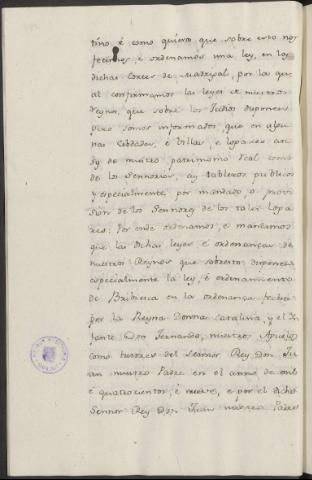 tino, é como quiera que sobre esto nos
fecimos, é ordenamos una ley, en las
dichas Cortes de Madrigal, por la qu
al confirmamos las leyes de nuestros
Reynos, que sobre los Judios disponen
pero somos informados, que en algu
nas Cibdades, é Villas, e logares an
sy de nuestro patrimonio Real como
de los Sennorios, ay tableros publicos
y especialmente, por mandado o provi
sion de los Sennores de los tales loga
res: Por ende ordenamos, e mandamos
que las dichas leyes, é ordenanzas de
nuestros Reynos que sobresto disponen
especialmente la ley, é ordenamiento
de Bribiesca en la ordenanza fecha
por la Reyna Donna Catalina, y el In
fante Don Fernando, nuestros Aguelos
como tutores del Sennor Rey Don Ju
an nuestro Padre en el anno de mil
é quatrocientos, é nueve, e por el dicho
Sennor Rey Don Juan nuestro Padre